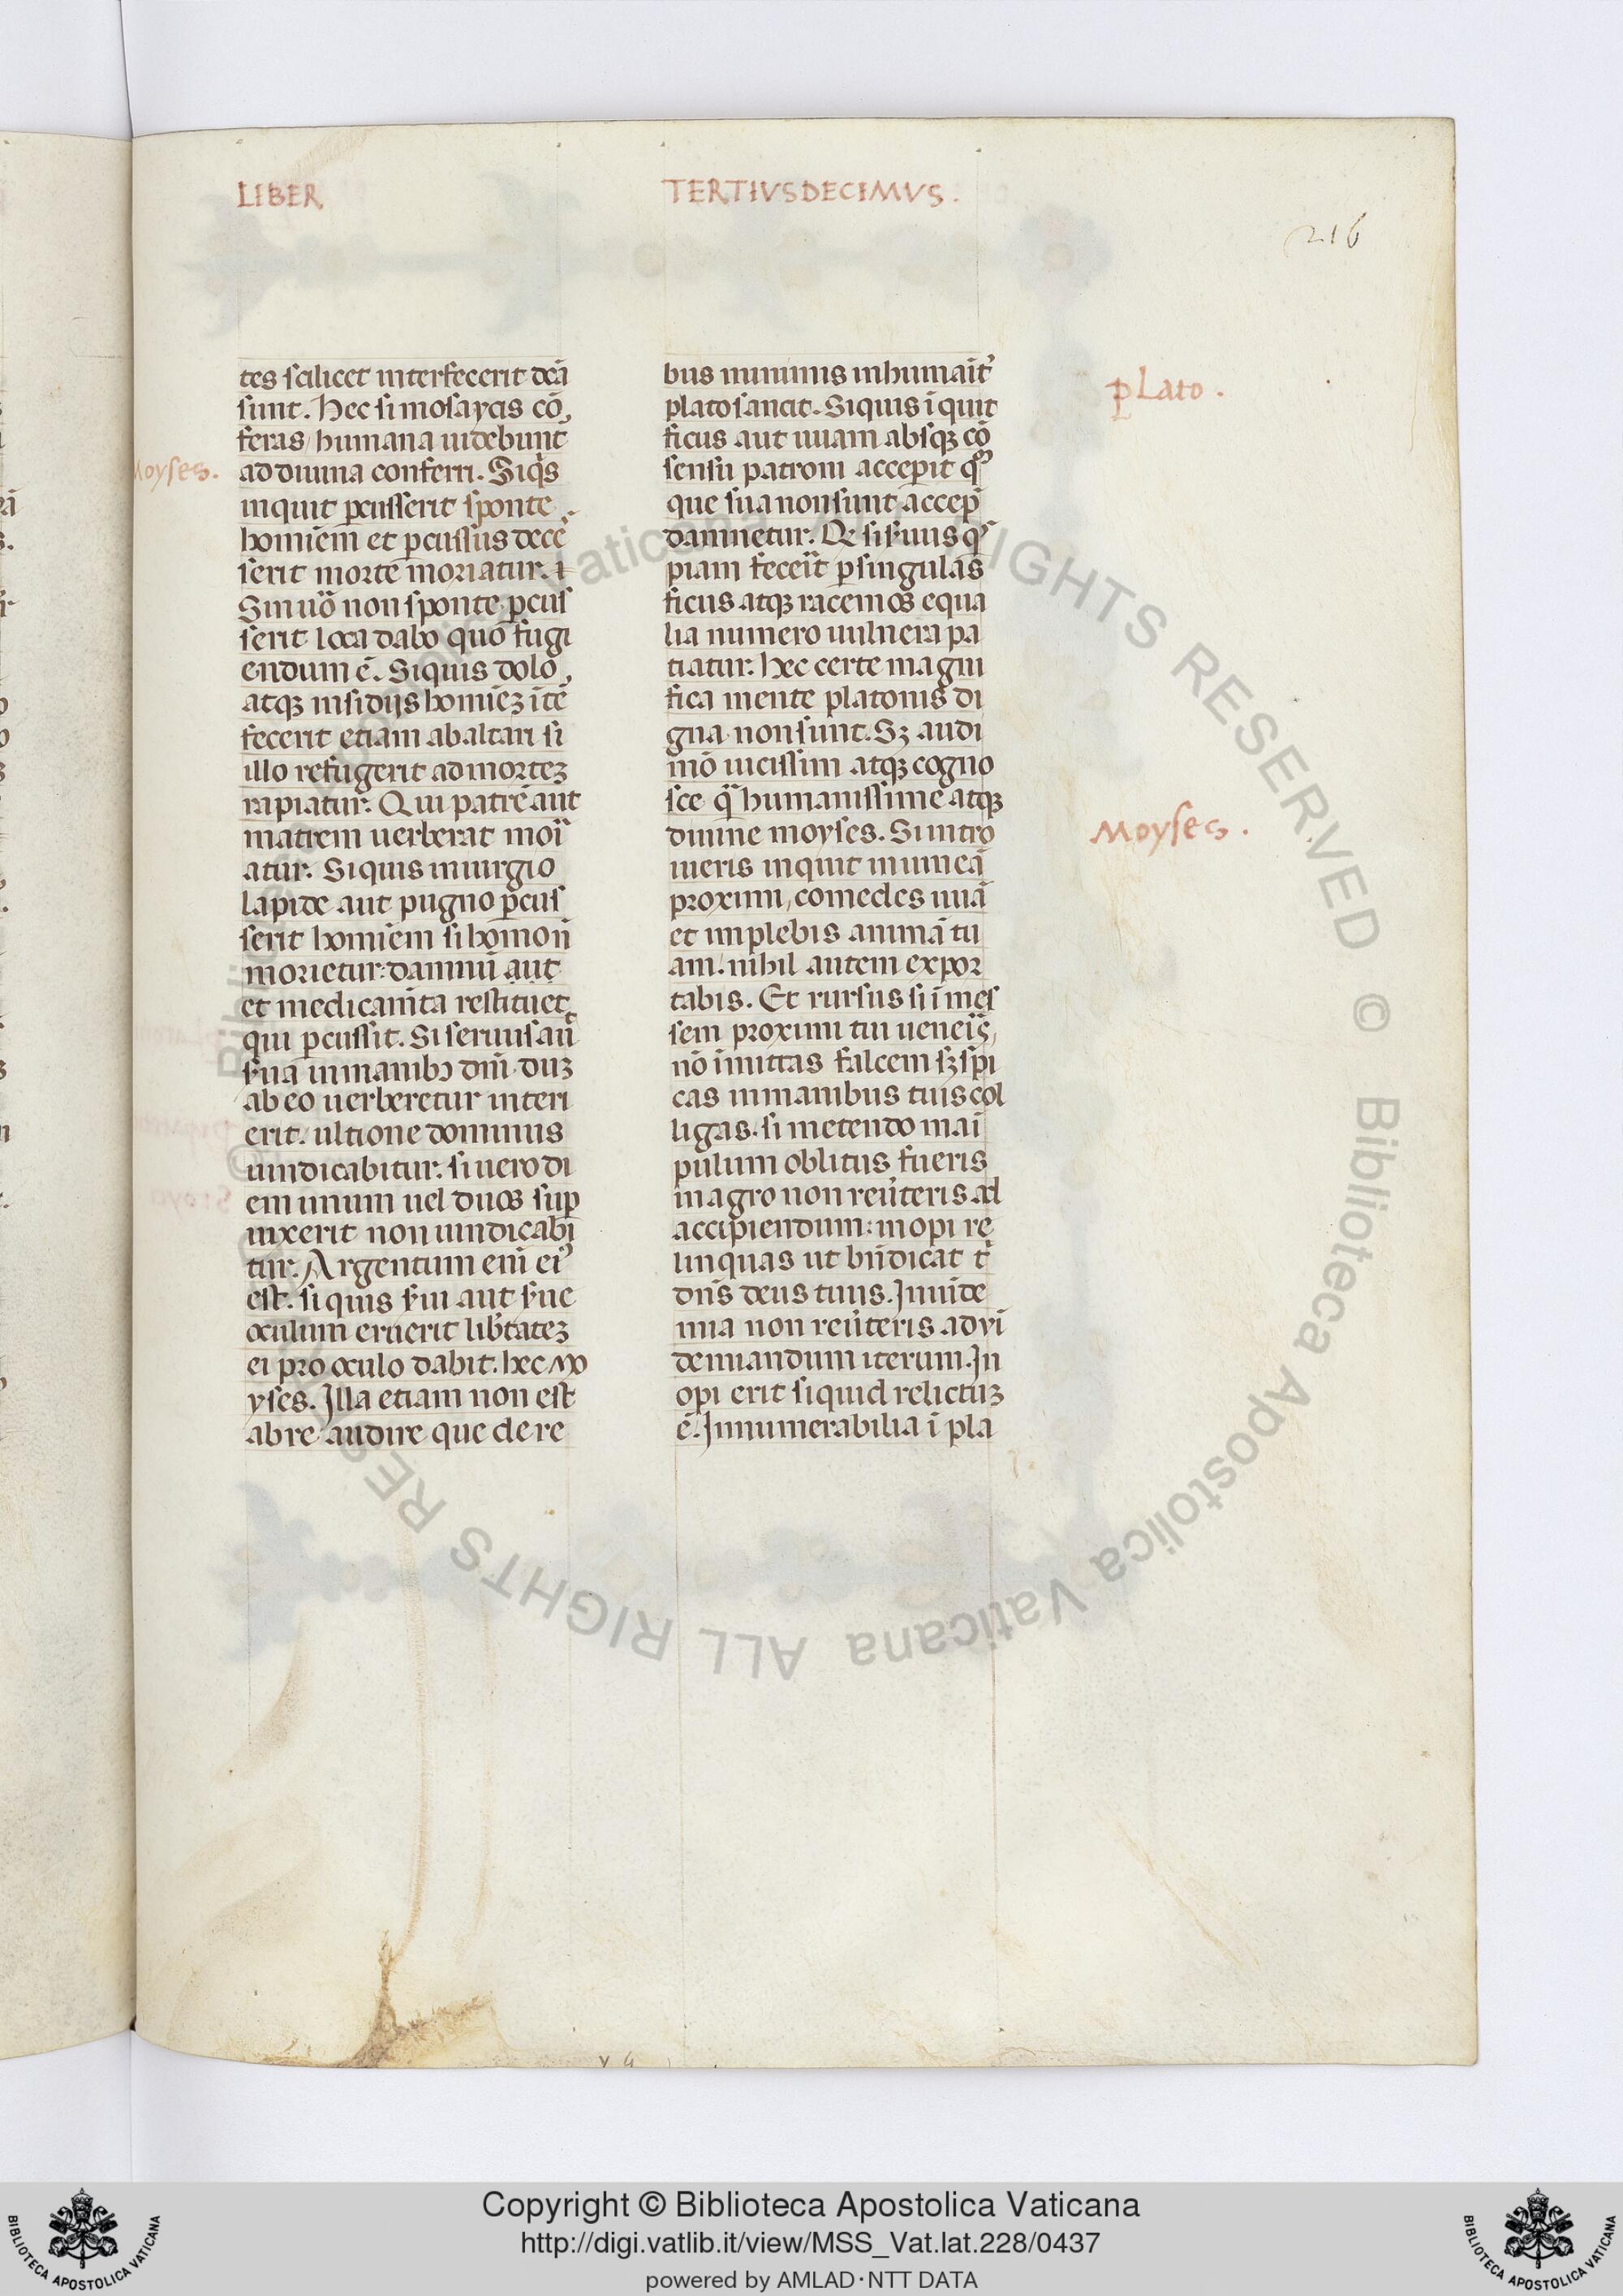 LIBER
TERTIVSDECIMVS.
216
tes scilicet interfecerit dcā
sunt. Hec si mosaycis cō
feras humana uidebunt̄
Moyses.
ad diuina conferri. Siqͥs
inquit ꝑcusserit sponte
homiēm et ꝑcussus dece
serit morte moriatur.
Sin uo᷑ non sponte ꝑcus
serit loca dabo quo fugi
endum ē. Siquis dolo
atqꝫ insidijs homiēꝫ ītē
fecerit etiam ab altari si
illo refugerit ad morteꝫ
rapiatur. Qui patrē aut
matrem uerberat mori
atur. Siquis in iurgio
lapide aut pugno ꝑcus
serit homiēm si homo nō
morietur: damnū aut
et medicam̄ta restituet
qui ꝑcussit. Si seruus aū
s̄uā in manibꝫ dn̄i duꝫ
ab eo uerberetur interi
erit. ultione dominus
uindicabitur. si uero di
em unum uel duos suꝑ
uixerit non uindicabi
tur. Argentum enī eiꝰ
est. si quis s̄ui aut s̄ue
oculum eruerit lib̄tateꝫ
ei pro oculo dabit. hec mo
yses. Illa etiam non est
ab re audire que de re
bus minimis inhumait᷑
plato sancit. Siquis īquit
ficus aut uuam absqꝫ cō
sensu patroni acceperit
que sua non sunt acceꝑ
damnetur. Qͩ si s̄uus qͥs
piam feceīt ꝑ singulas
ficus atqꝫ racemos equa
lia numero uulnera pa
tiatur. hec certe magni
fica mente platonis di
gna non sunt. Sꝫ audi
mō uicissim atqꝫ cogno
sce qͣ humanissime atqꝫ
diuine moyses. Si intro
ieris inquit in uineā
proximi, comedes uuā
et implebis animā tu
am. nihil autem expor
tabis. Et rursus si ī mes
sem proximi tui ueneīs,
nō īmittas falcem sꝫ spi
cas in manibus tuis col
ligas. si metendo mai
pulum oblitus fueris
in agro non reūteris ad
accipiendum: inopi re
linquas ut bn̄dicat tͥ
dn̄s deus tuus. In uide
mia non reūteris ad vī
demiandum iterum. In
opi erit si quid relictuꝫ
ē. Innumerabilia ī pla
plato.
Moyses.
v 4
Copyright © Biblioteca Apostolica Vaticana
http://digi.vatlib.it/view/MSS_Vat.lat.228/0437
powered by AMLAD·NTT DATA
BIBLIOTECA APOSTOLICA VATICANA
BIBLIOTECA APOSTOLICA VATICANA
© Biblioteca Apostolica Vaticana ALL RIGHTS RESERVED © Biblioteca Apostolica Vaticana ALL RIGHTS RESERVED